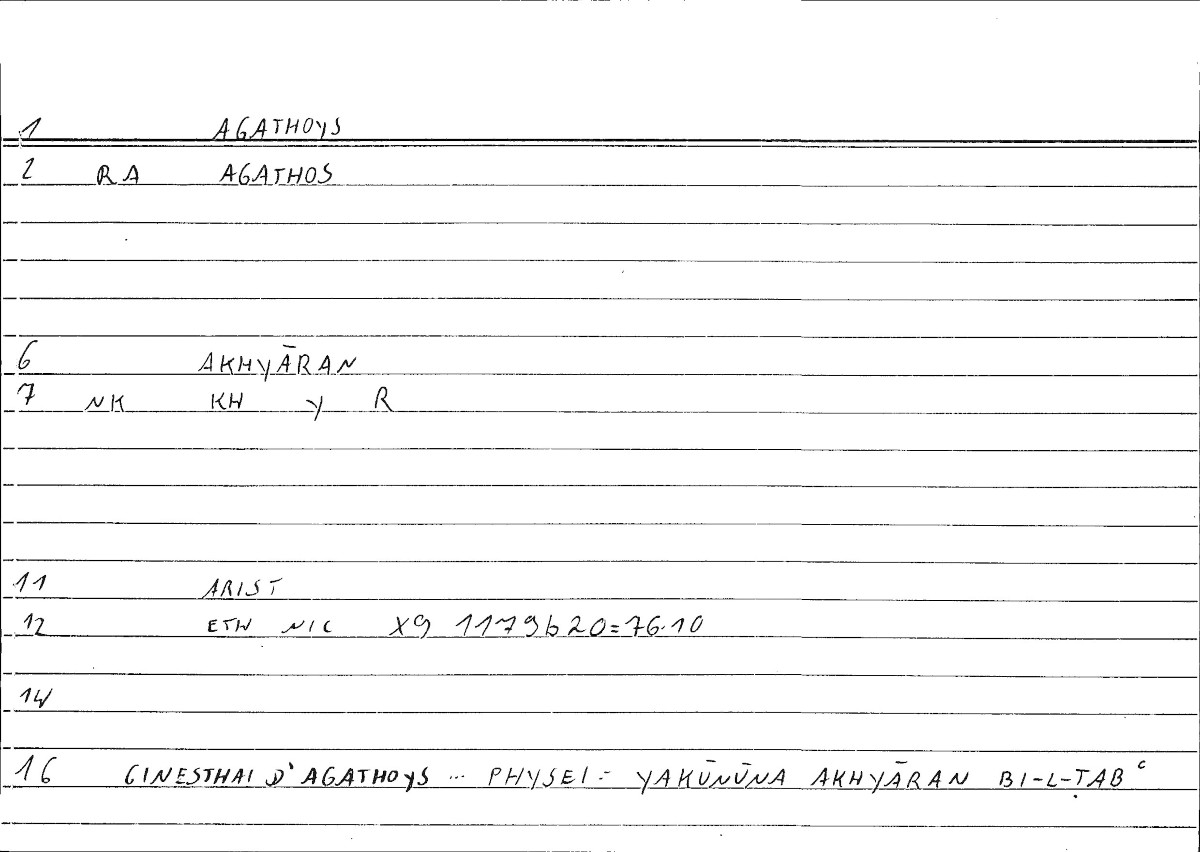 1 AGATHOYS
2 RA AGATHOS
6 AKHYĀRAN
7 NK KH Y R
11 ARIST
12 ETH NIC X9 1179b20=76.10
14
16 GINESTHAI D'AGATHOYS ... PHYSEI = YAKŪNŪNA AKHYĀRAN BI-L-ṬAB ͨ